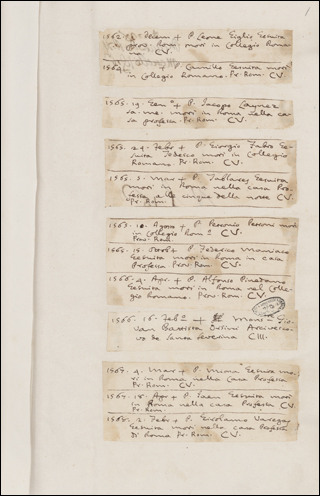 1
1562. 13. Decem + P. Leone Giglio Gesuita
Prov. Rom. morì in Collegio Roma
no CV.
1564. + P. Camillo Gesuita morì
in Collegio Romano. Pr. Rom. CV.
1565. 19. Gen.º + P. Jacopo Laynez
morì in Roma nella ca
sa professa. Pr. Rom. CV.
1565. 24. Febr + P. Giorgio Fabro Ge-
suita Tedesco morì in Collegio
Romano Pr. Rom. CV.
1565. 3. Mar + P. Gesuita
morì in Roma nella casa Pro-
fessa alle cinque della notte CV.
Pr. Rom.
1565. 10. Agos + P. Petronio morì
in Collegio Rom.º CV.
Prov. Rom.
1565. 15. + P. Federico
Gesuita morì in Roma in casa
Professa Prov. Rom. CV.
1566. 4. Apr. + P. Alfonso
Gesuita morì in Roma nel Colle-
gio Romano. Prov. Rom. CV.
1566. 16. Feb.º + Mons.r Gio-
van Battista Orsini Arcivesco-
vo de Santa Severina CIII.
1567. 4. Mar + P. Gesuita mo-
rì in Roma nella Casa Professa
Pr. Rom. CV.
1567. 15. Ago + P. Gesuita morì
in Roma nella casa Professa CV.
Pr. Rom.
1568. 2. Febr + P. Girolamo
Gesuita morì nella casa Professa
di Roma Pr. Rom. CV.